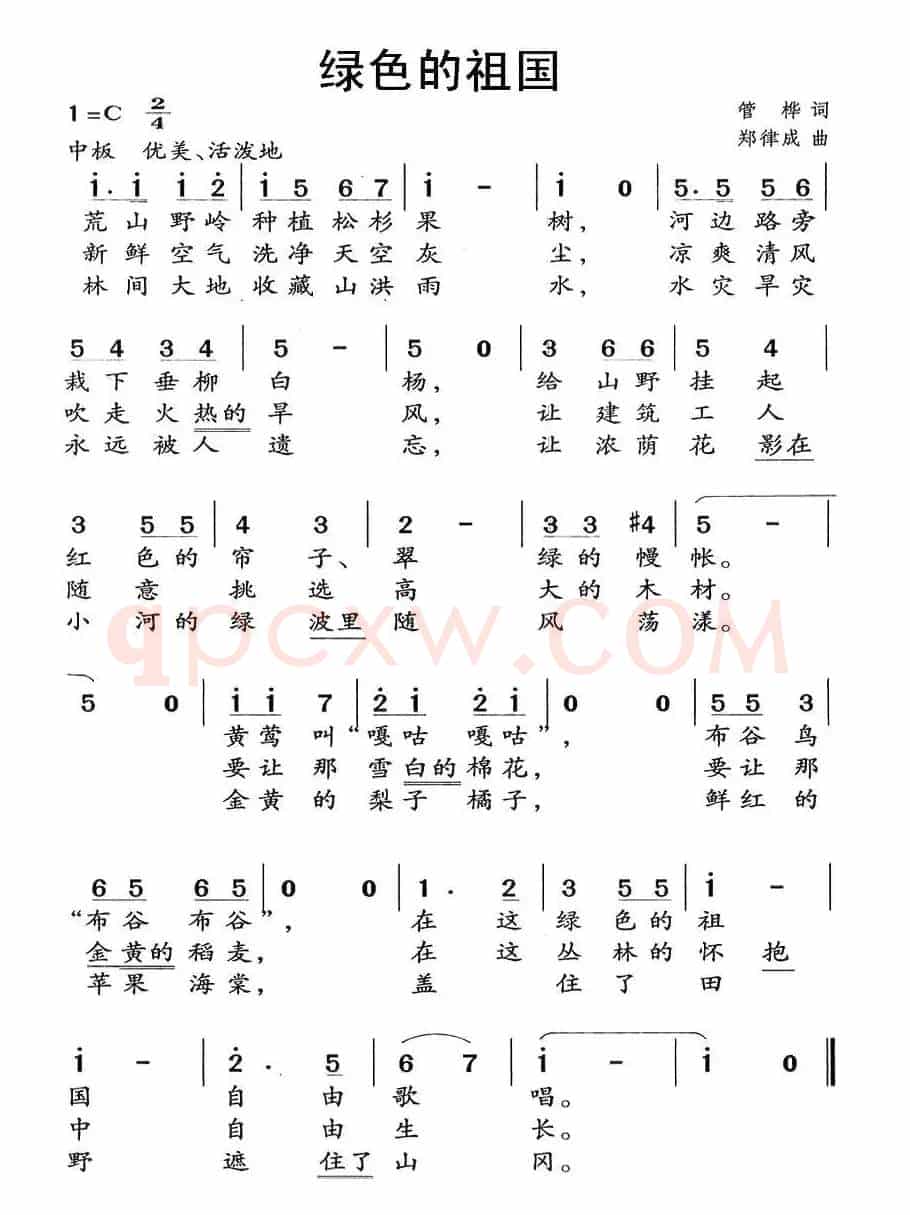 绿色的祖国
1=C 2/4
管 桦 词
中板 优美、活泼地
郑律成 曲
i. i i 2 | i 5 6 7 | i - | i 0 | 5. 5 5 6
荒山野岭种植松杉果 树, 河边路旁
新鲜空气洗净天空灰 尘, 凉爽清风
林间大地收藏山洪雨 水, 水灾旱灾
5 4 3 4 | 5 - | 5 0 | 3 6 6 | 5 4
栽下垂柳白 杨, 给山野挂起
吹走火热的旱 风, 让建筑工人
永远被人遗 忘, 让浓荫花影在
3 5 5 | 4 3 | 2 - | 3 3 #4 | 5 -
红色的帘子、翠 绿的慢帐。
随意挑选高 大的木材。
小河的绿波里随 风荡漾。
qpcxw.COM
5 0 | i i 7 | 2 i 2 i | 0 0 | 5 5 3
黄莺叫“嘎咕 嘎咕”, 布谷鸟
要让那雪白的棉花, 要让那
金黄的梨子橘子, 鲜红的
6 5 6 5 | 0 0 | 1 . 2 | 3 5 5 | i -
“布谷 布谷”, 在这绿色的祖
金黄的稻麦, 在这丛林的怀抱
苹果海棠, 盖住了田
i - | 2 . 5 | 6 7 | i - | i 0 ‖
国 自由歌唱。
中 自由生长。
野 遮住了山冈。